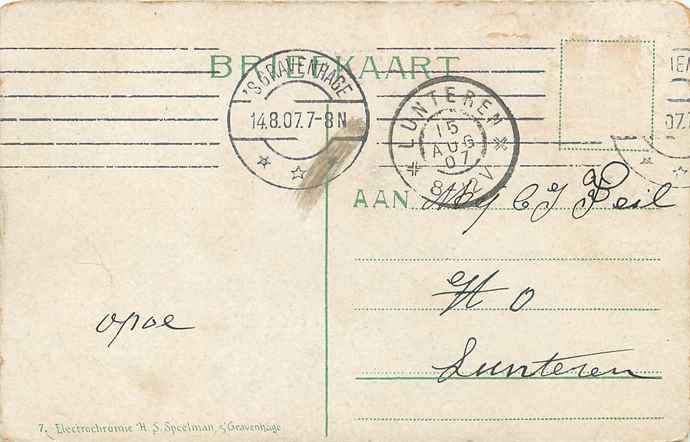 BRIEFKAART
'S GRAVENHAGE
14.8.07.7-8N
LUNTEREN
15
AUG
07
8-12V
AAN
C J Peil
H O
Lunteren
opoe
7. Electrochromie H. S. Speelman, s'Gravenhage